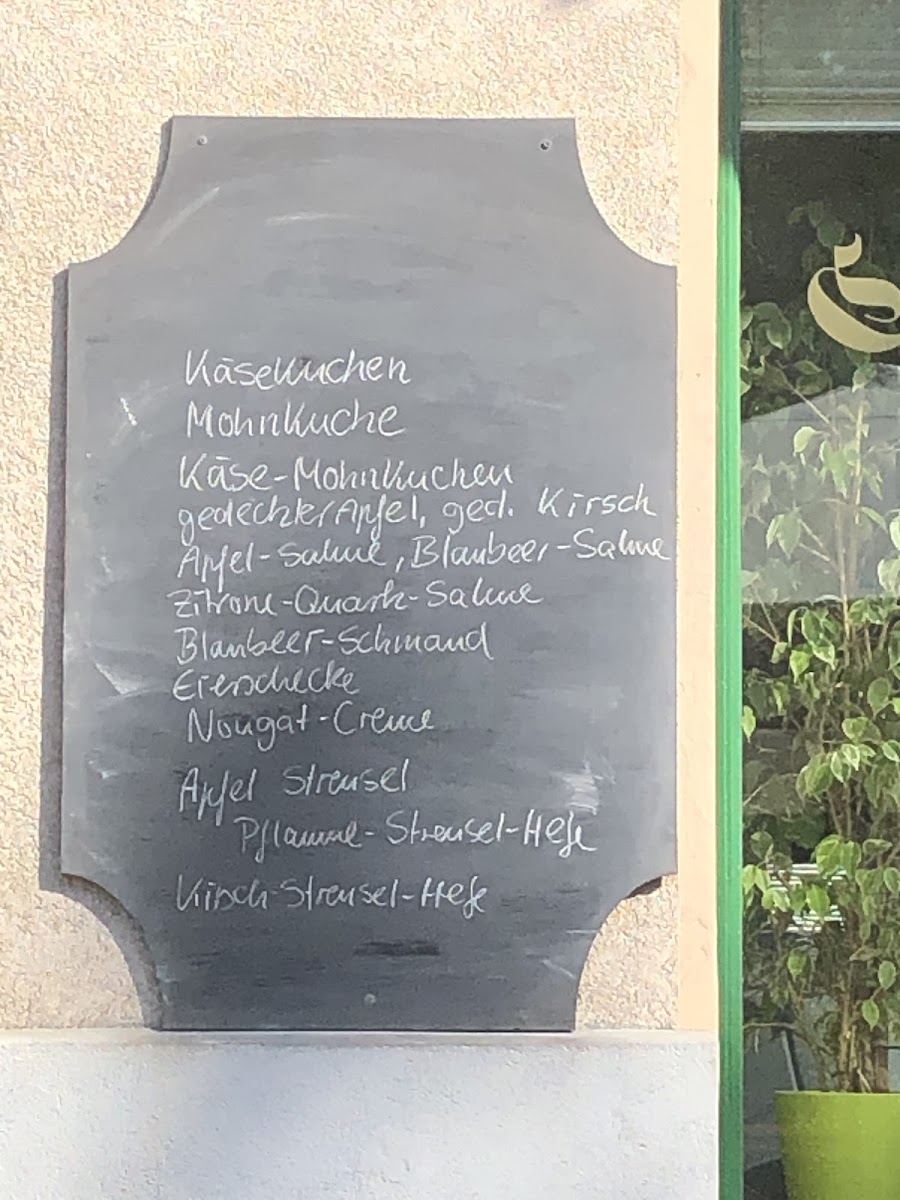 Käsekuchen
Mohnkuche
Käse-Mohnkuchen
gedeckter Apfel, ged. Kirsch
Apfel-Sahne, Blaubeer-Sahne
Zitrone-Quark-Sahne
Blaubeer-Schmand
Eierschecke
Nougat-Creme
Apfel Streusel
Pflaume-Streusel-Hefe
Kirsch-Streusel-Hefe